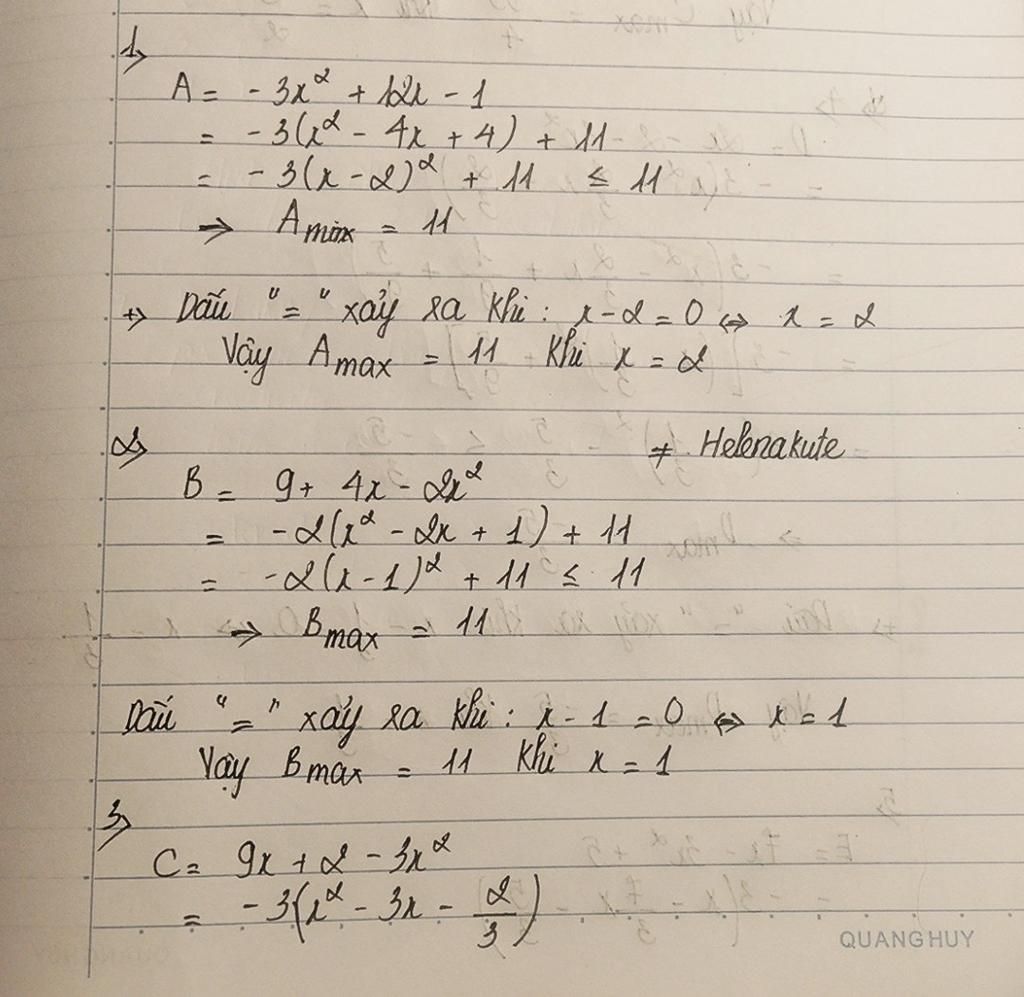 1)
A = -3x² + 12x - 1
= -3(x² - 4x + 4) + 11
= -3(x-2)² + 11 ≤ 11
=> Amax = 11
+) Dấu "=" xảy ra khi: x-2=0 <=> x = 2
Vậy Amax = 11 khi x = 2
2)
≠ Helenakute
B = 9 + 4x - 2x²
= -2(x² - 2x + 1) + 11
= -2(x-1)² + 11 ≤ 11
=> Bmax = 11
Dấu "=" xảy ra khi: x-1 = 0 <=> x = 1
Vậy Bmax = 11 khi x = 1
3)
C = 9x + 2 - 3x²
= -3(x² - 3x - 2/3)
QUANG HUY